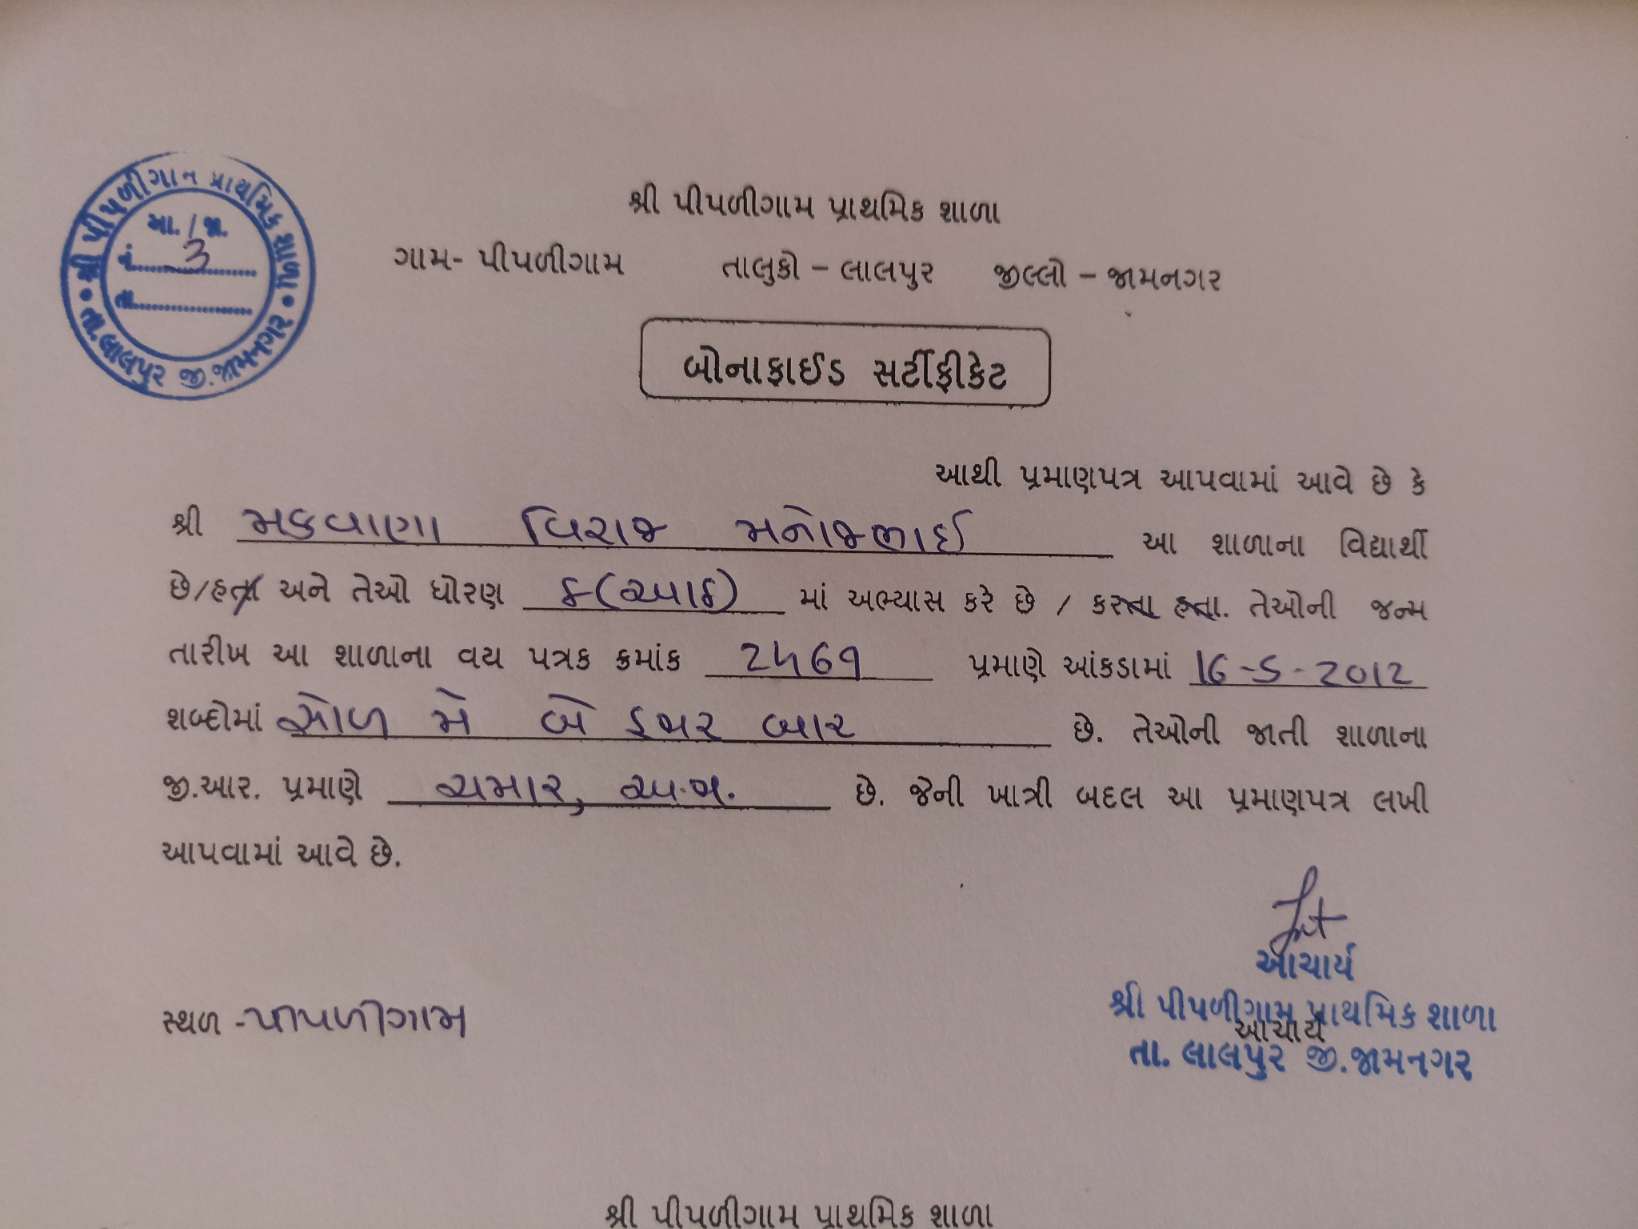 શ્રી પીપળીગામ પ્રાથમિક શાળા
મા. / જા.
નં. 3
તા.
તા. લાલપુર જી. જામનગર
શ્રી પીપળીગામ પ્રાથમિક શાળા
ગામ- પીપળીગામ તાલુકો - લાલપુર જીલ્લો - જામનગર
બોનાફાઈડ સર્ટીફીકેટ
આથી પ્રમાણપત્ર આપવામાં આવે છે કે
શ્રી મકવાણા વિરાજ મનોજભાઈ આ શાળાના વિદ્યાર્થી
છે/હતા અને તેઓ ધોરણ ૮(આઠ) માં અભ્યાસ કરે છે / કરતા હતા. તેઓની જન્મ
તારીખ આ શાળાના વય પત્રક ક્રમાંક 2૫6૧ પ્રમાણે આંકડામાં 16-5-2012
શબ્દોમાં સોળ મે બે હજાર બાર છે. તેઓની જાતી શાળાના
જી.આર. પ્રમાણે ચમાર, અ.જા. છે. જેની ખાત્રી બદલ આ પ્રમાણપત્ર લખી
આપવામાં આવે છે.
આચાર્ય
શ્રી પીપળીગામ પ્રાથમિક શાળા
સ્થળ - પીપળીગામ
આચાર્ય
તા. લાલપુર જી.જામનગર
શ્રી પીપળીગામ પ્રાથમિક શાળા